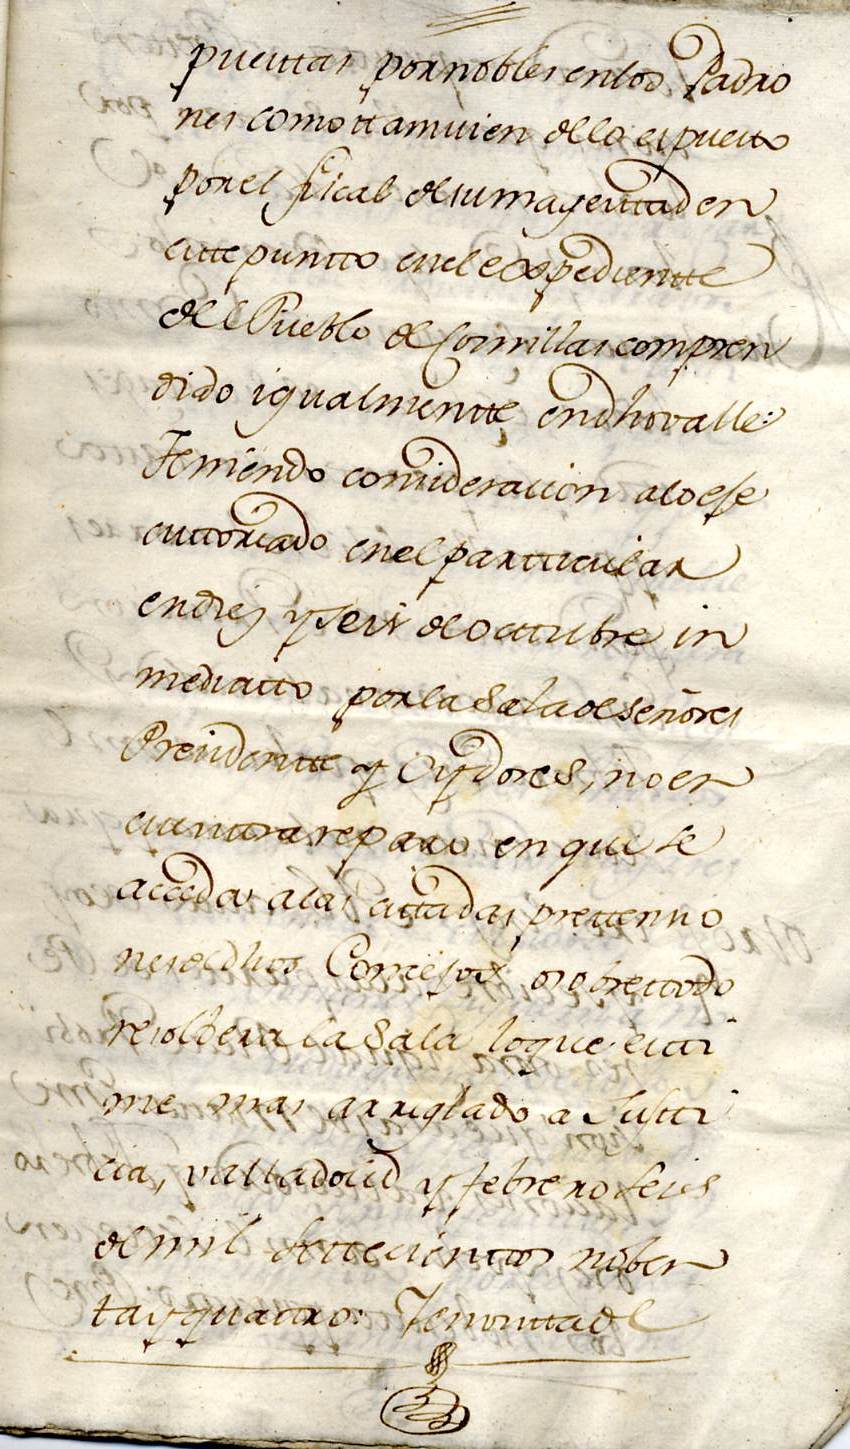 puesttas por nobles en los Padro
nes como ttamvien de lo espuesto
por el fiscal de su magesttad en
este puntto en el expediente
del Pueblo de Comillas compren
dido igualmentte en dho valle:
Teniendo consideracion a lo ese
cuttoriado en el partticular
en diez y seis de octtubre in
mediatto por la Sala de señores
Presidentte y Oydores, no en
cuenttra reparo en que se
acceda a las cittadas prettensio
nes de dhos Concejos o sobre ttodo
resolbera la Sala lo que estti
me mas arreglado a Justti
cia, valladolid y febrero seis
de mil settecienttos noben
ta y quattro: